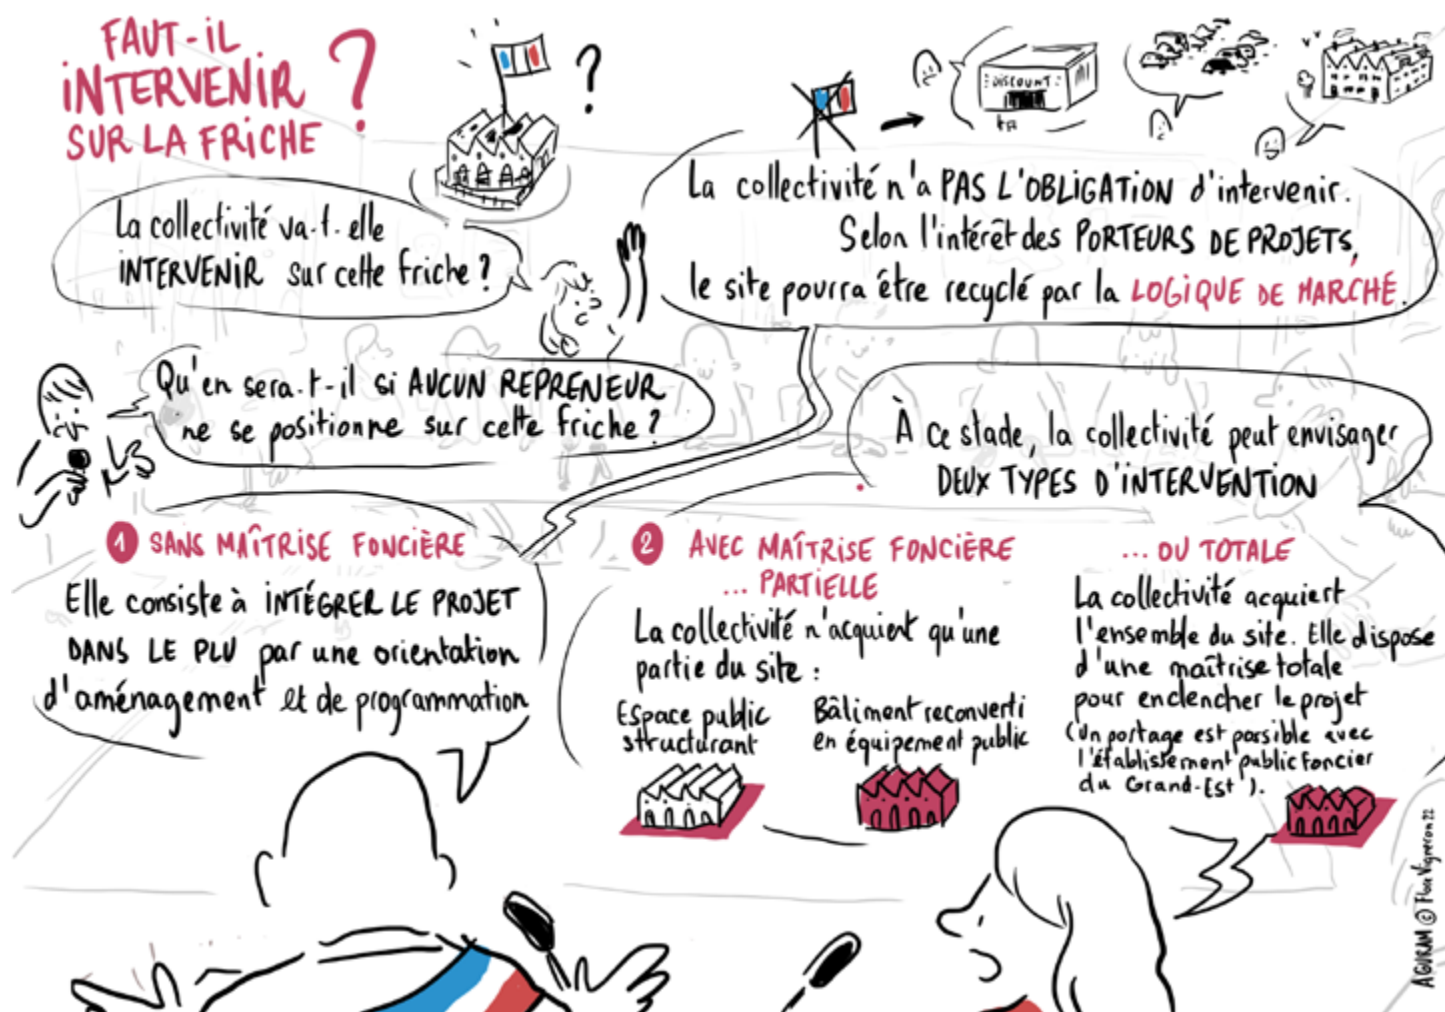 FAUT-IL
INTERVENIR
SUR LA FRICHE ?
?
DISCOUNT
La collectivité va-t-elle
INTERVENIR sur cette friche ?
La collectivité n'a PAS L'OBLIGATION d'intervenir.
Selon l'intérêt des PORTEURS DE PROJETS,
le site pourra être recyclé par la LOGIQUE DE MARCHÉ.
Qu'en sera-t-il si AUCUN REPRENEUR
ne se positionne sur cette friche ?
À ce stade, la collectivité peut envisager
DEUX TYPES D'INTERVENTION
1 SANS MAÎTRISE FONCIÈRE
Elle consiste à INTÉGRER LE PROJET
DANS LE PLU par une orientation
d'aménagement et de programmation
2 AVEC MAÎTRISE FONCIÈRE
... PARTIELLE
La collectivité n'acquiert qu'une
partie du site :
Espace public
structurant
Bâtiment reconverti
en équipement public
... OU TOTALE
La collectivité acquiert
l'ensemble du site. Elle dispose
d'une maîtrise totale
pour enclencher le projet
(Un portage est possible avec
l'établissement public foncier
du Grand-Est).
AGURAM © Flore Vigneron 22